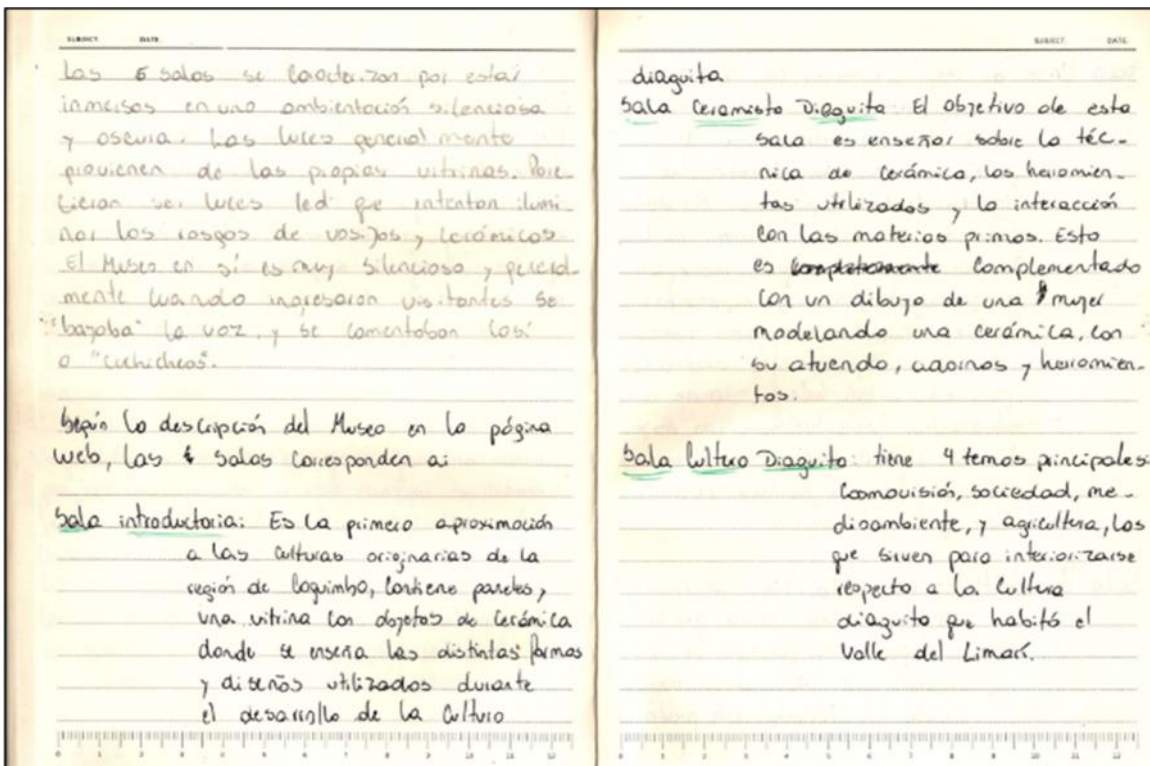 SUBJECT. DATE.
Las 5 salas se caracterizan por estar
inmersas en una ambientación silenciosa
y oscura. Las luces general mente
provienen de las propias vitrinas. Pare-
cieran ser luces led que intentan ilumi-
nar los rasgos de vasijas y cerámicas
El Museo en sí es muy silencioso y general-
mente cuando ingresaron visitantes se
"bajaba" la voz, y se comentaban casi
a "cuchicheos".
Según la descripción del Museo en la página
web, las salas corresponden a:
Sala introductoria: Es la primera aproximación
a las culturas originarias de la
región de Coquimbo, contiene paneles,
una vitrina con objetos de cerámica
donde se enseña las distintas formas
y diseños utilizados durante
el desarrollo de la cultura
0 1 2 3 4 5 6 7 8 9 10 11 12
SUBJECT. DATE.
diaguita
Sala Ceramista Diaguita El objetivo de esta
sala es enseñar sobre la téc-
nica de cerámica, las herramien-
tas utilizadas y la interacción
con las materias primas. Esto
es completamente complementado
con un dibujo de una mujer
modelando una cerámica, con
su atuendo, adornos y herramien-
tas.
Sala Cultura Diaguita: tiene 4 temas principales:
Cosmovisión, sociedad, me-
dioambiente, y agricultura, los
que sirven para interiorizarse
respecto a la cultura
diaguita que habitó el
Valle del Limarí.
0 1 2 3 4 5 6 7 8 9 10 11 12